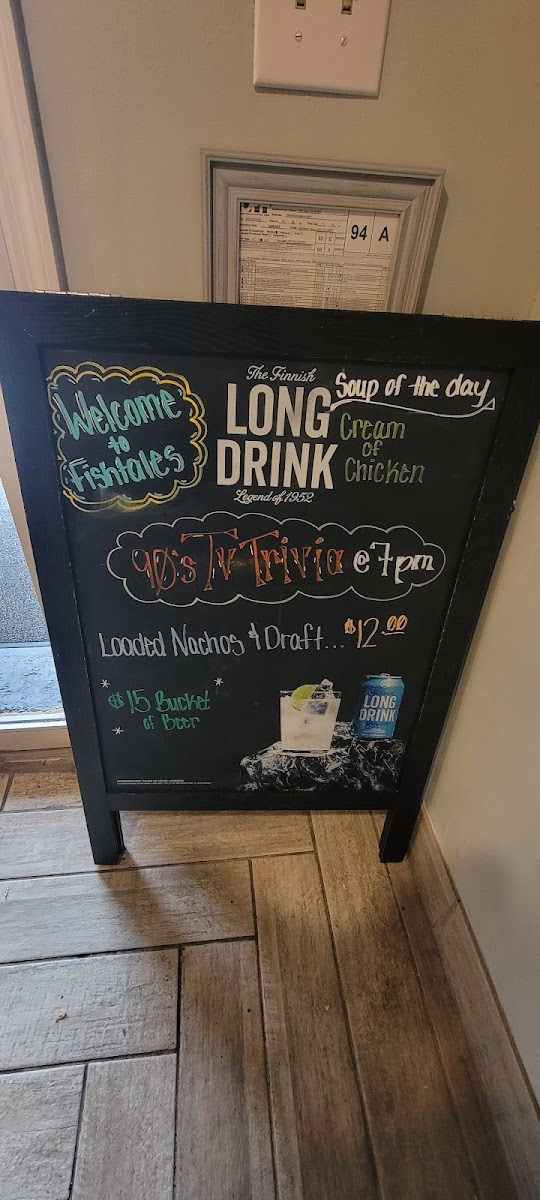 94 A
Welcome
to
Fishtales
The Finnish
LONG
DRINK
Legend of 1952
Soup of the day
Cream
of
Chicken
90's Tv Trivia @ 7pm
Loaded Nachos & Draft... $12.00
* $15 Bucket *
* of Beer
LONG
DRINK